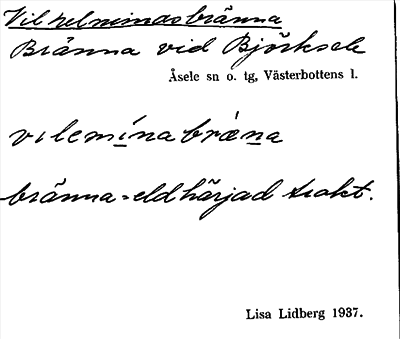 Vilhelminasbränna
Bränna vid Björksele
Åsele sn o. tg, Västerbottens l.
vılemína brǽna
bränna = eldhärjad trakt.
Lisa Lidberg 1937.